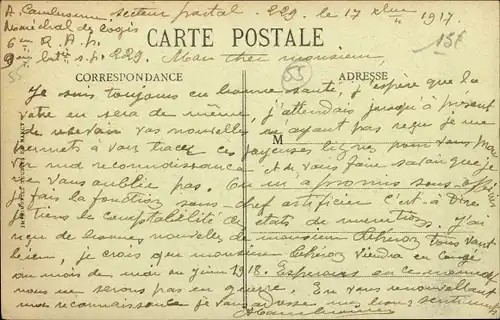 A. secteur postal. 229. le 17 xbre 1917.
Maréchal des Logis
6me R. A. p.
9me Btie s.p. 229. Mon cher monsieur,
CARTE POSTALE
15f
55
55
CORRESPONDANCE
ADRESSE
M
Je suis toujours en bonne santé, j'espère que la
votre en sera de même, j'attendais jusqu'à présent
de recevoir vos nouvelles n'ayant pas reçu je me
permets à vous tracer ces joyeuses lignes pour vous
ma reconnaissance et de vous faire savoir que je
ne vous oublie pas. On m'a promis sous-officier
je fais la fonction sous-chef artificier c'est-à-dire
je tiens la comptabilité des états de munitions. J'ai
reçu de bonnes nouvelles de monsieur tous vont
bien, je crois que monsieur viendra en congé
au mois de mai ou juin 1918. Espérons en ce moment
nous ne serons pas en guerre. En vous renouvellant
ma reconnaissance je vous adresse mes bons sentiments